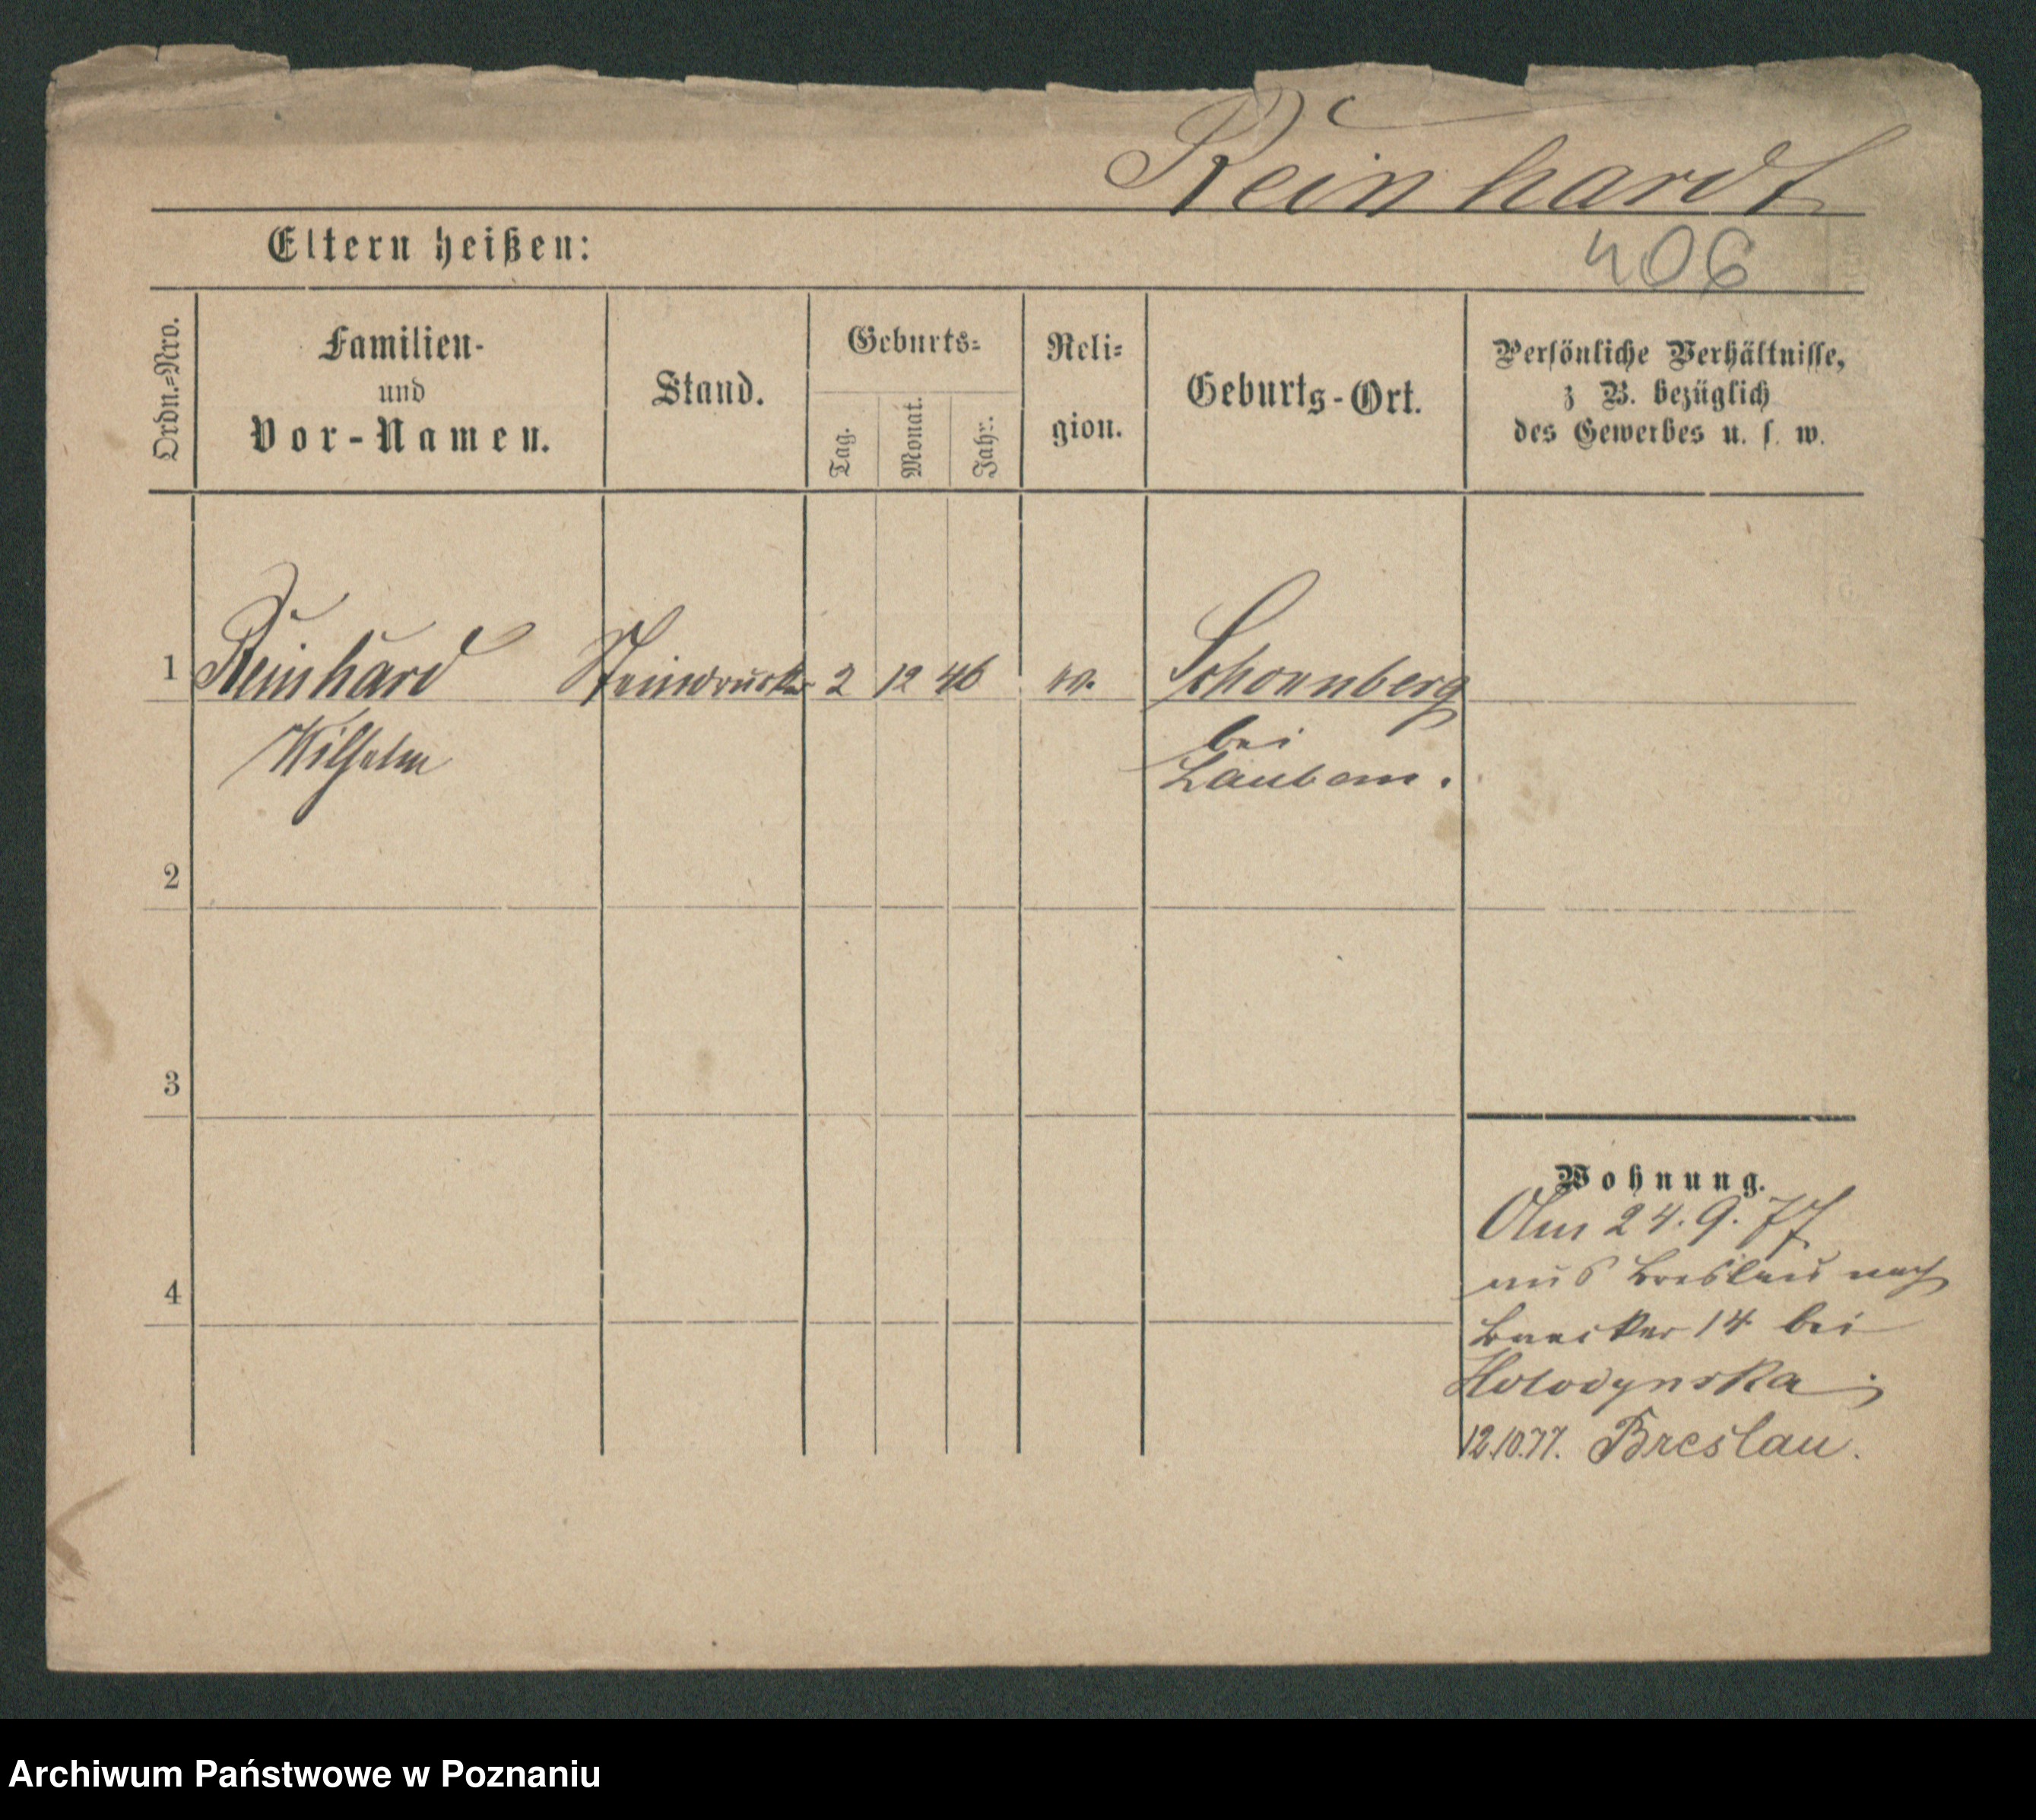 Reinhardt
Eltern heißen:
406
Ordn.-Nro.
Familien-
und
Vor-Namen.
Stand.
Geburts-
Tag.
Monat.
Jahr.
Reli-
gion.
Geburts-Ort.
Persönliche Verhältnisse,
z B. bezüglich
des Gewerbes u. s. w.
1 Reinhard Steindrucker 2 12 46 Schonnberg
Wilhelm
bei
Lauban.
2
3
4
Wohnung.
Am 24. 9. 77
aus Breslau nach
14 bei
Holodynska
12.10.77. Breslau.
Archiwum Państwowe w Poznaniu